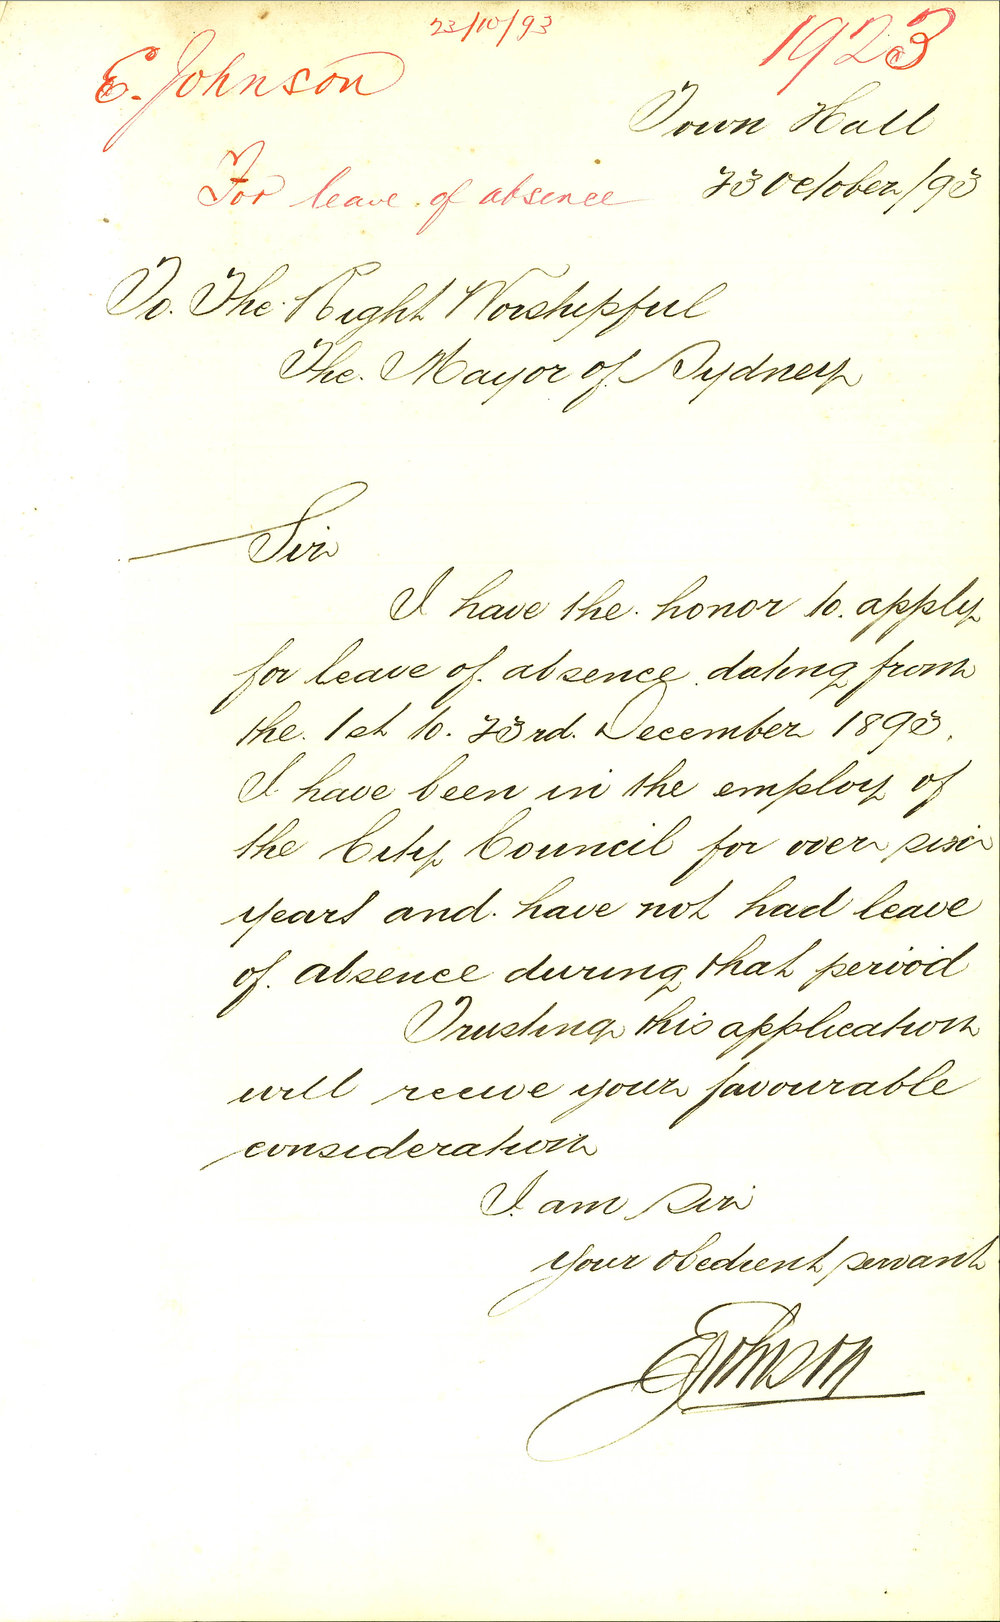 23/10/93
1923
E. Johnson
Town Hall
For leave of absence
23 October/93
To. The Right Worshipful
The. Mayor of Sydney
Sir
I have the honor to. apply
for leave of absence dating from
the. 1st to. 23rd. December 1893.
I have been in the employ of
the City Council for over six
years and. have not had leave
of. absence during that period
Trusting this application
will receive your favourable
consideration
I am Sir
your obedient servant
EJohnson